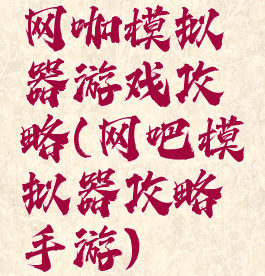 网咖模拟
器游戏攻
略(网吧模
拟器攻略
手游)